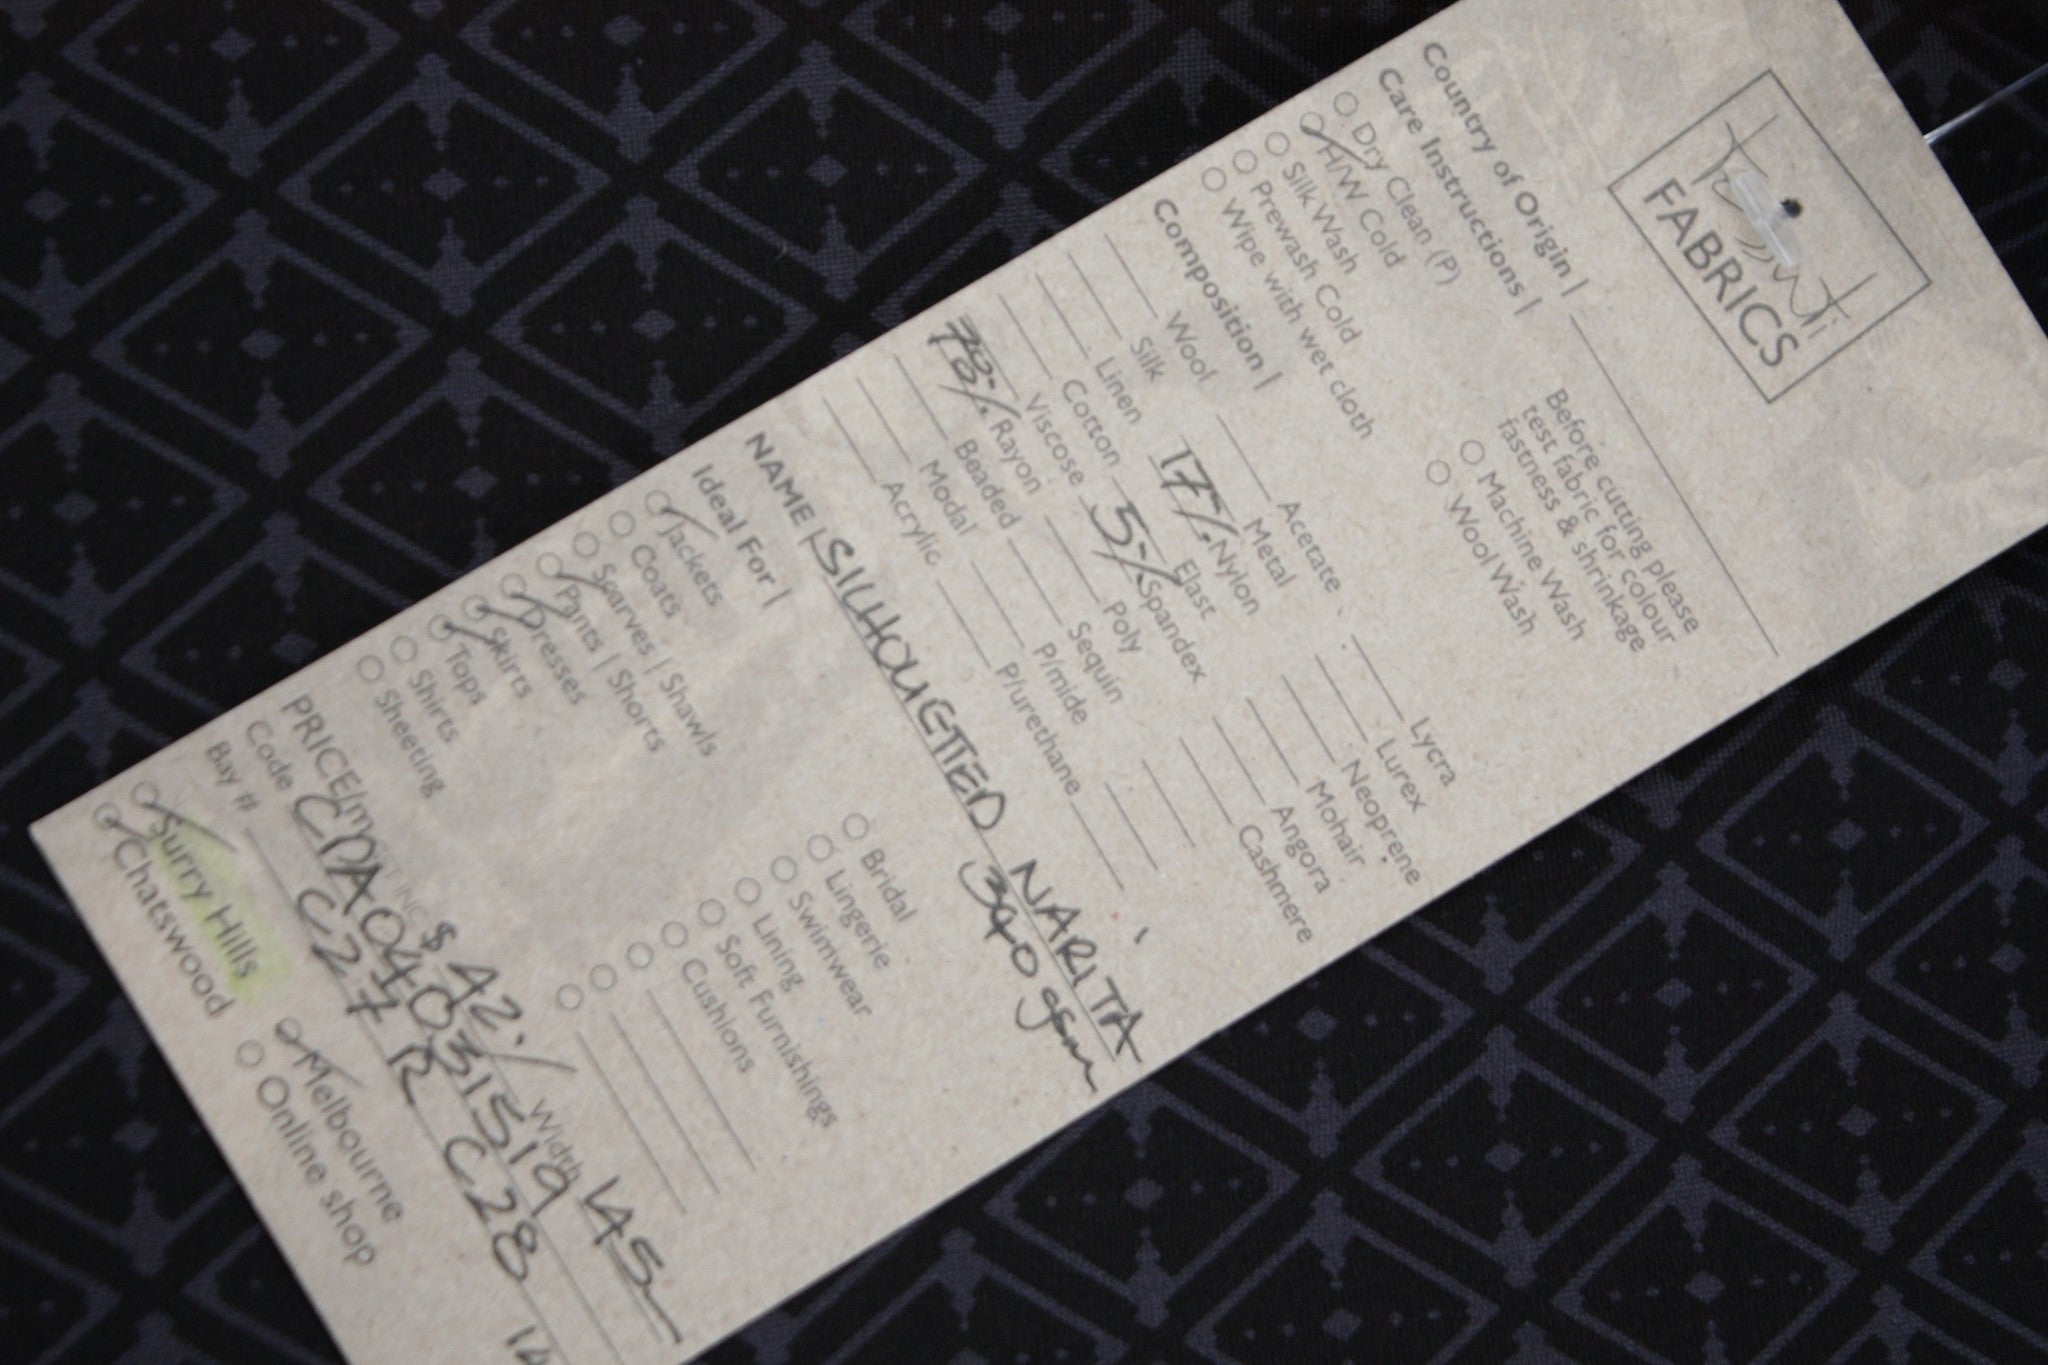 Tessuti
FABRICS
Country of Origin |
Care Instructions |
Before cutting please
test fabric for colour
fastness & shrinkage
Dry Clean (P)
H/W Cold
Silk Wash
Prewash Cold
Wipe with wet cloth
Machine Wash
Wool Wash
Composition |
Wool
Silk
Linen
Cotton
Viscose
78% Rayon
Beaded
Modal
Acrylic
Acetate
Metal
17% Nylon
Elast
5% Spandex
Poly
Sequin
P/mide
P/urethane
Lycra
Lurex
Neoprene
Mohair
Angora
Cashmere
NAME | SILHOUETTED NARITA
340gsm
Ideal For |
Jackets
Coats
Scarves | Shawls
Pants | Shorts
Dresses
Skirts
Tops
Shirts
Sheeting
Bridal
Lingerie
Swimwear
Lining
Soft Furnishings
Cushions
PRICE/m $42. Width 145
Code CNA04031519
Bay # C27 R C28
Surry Hills
Chatswood
Melbourne
Online shop